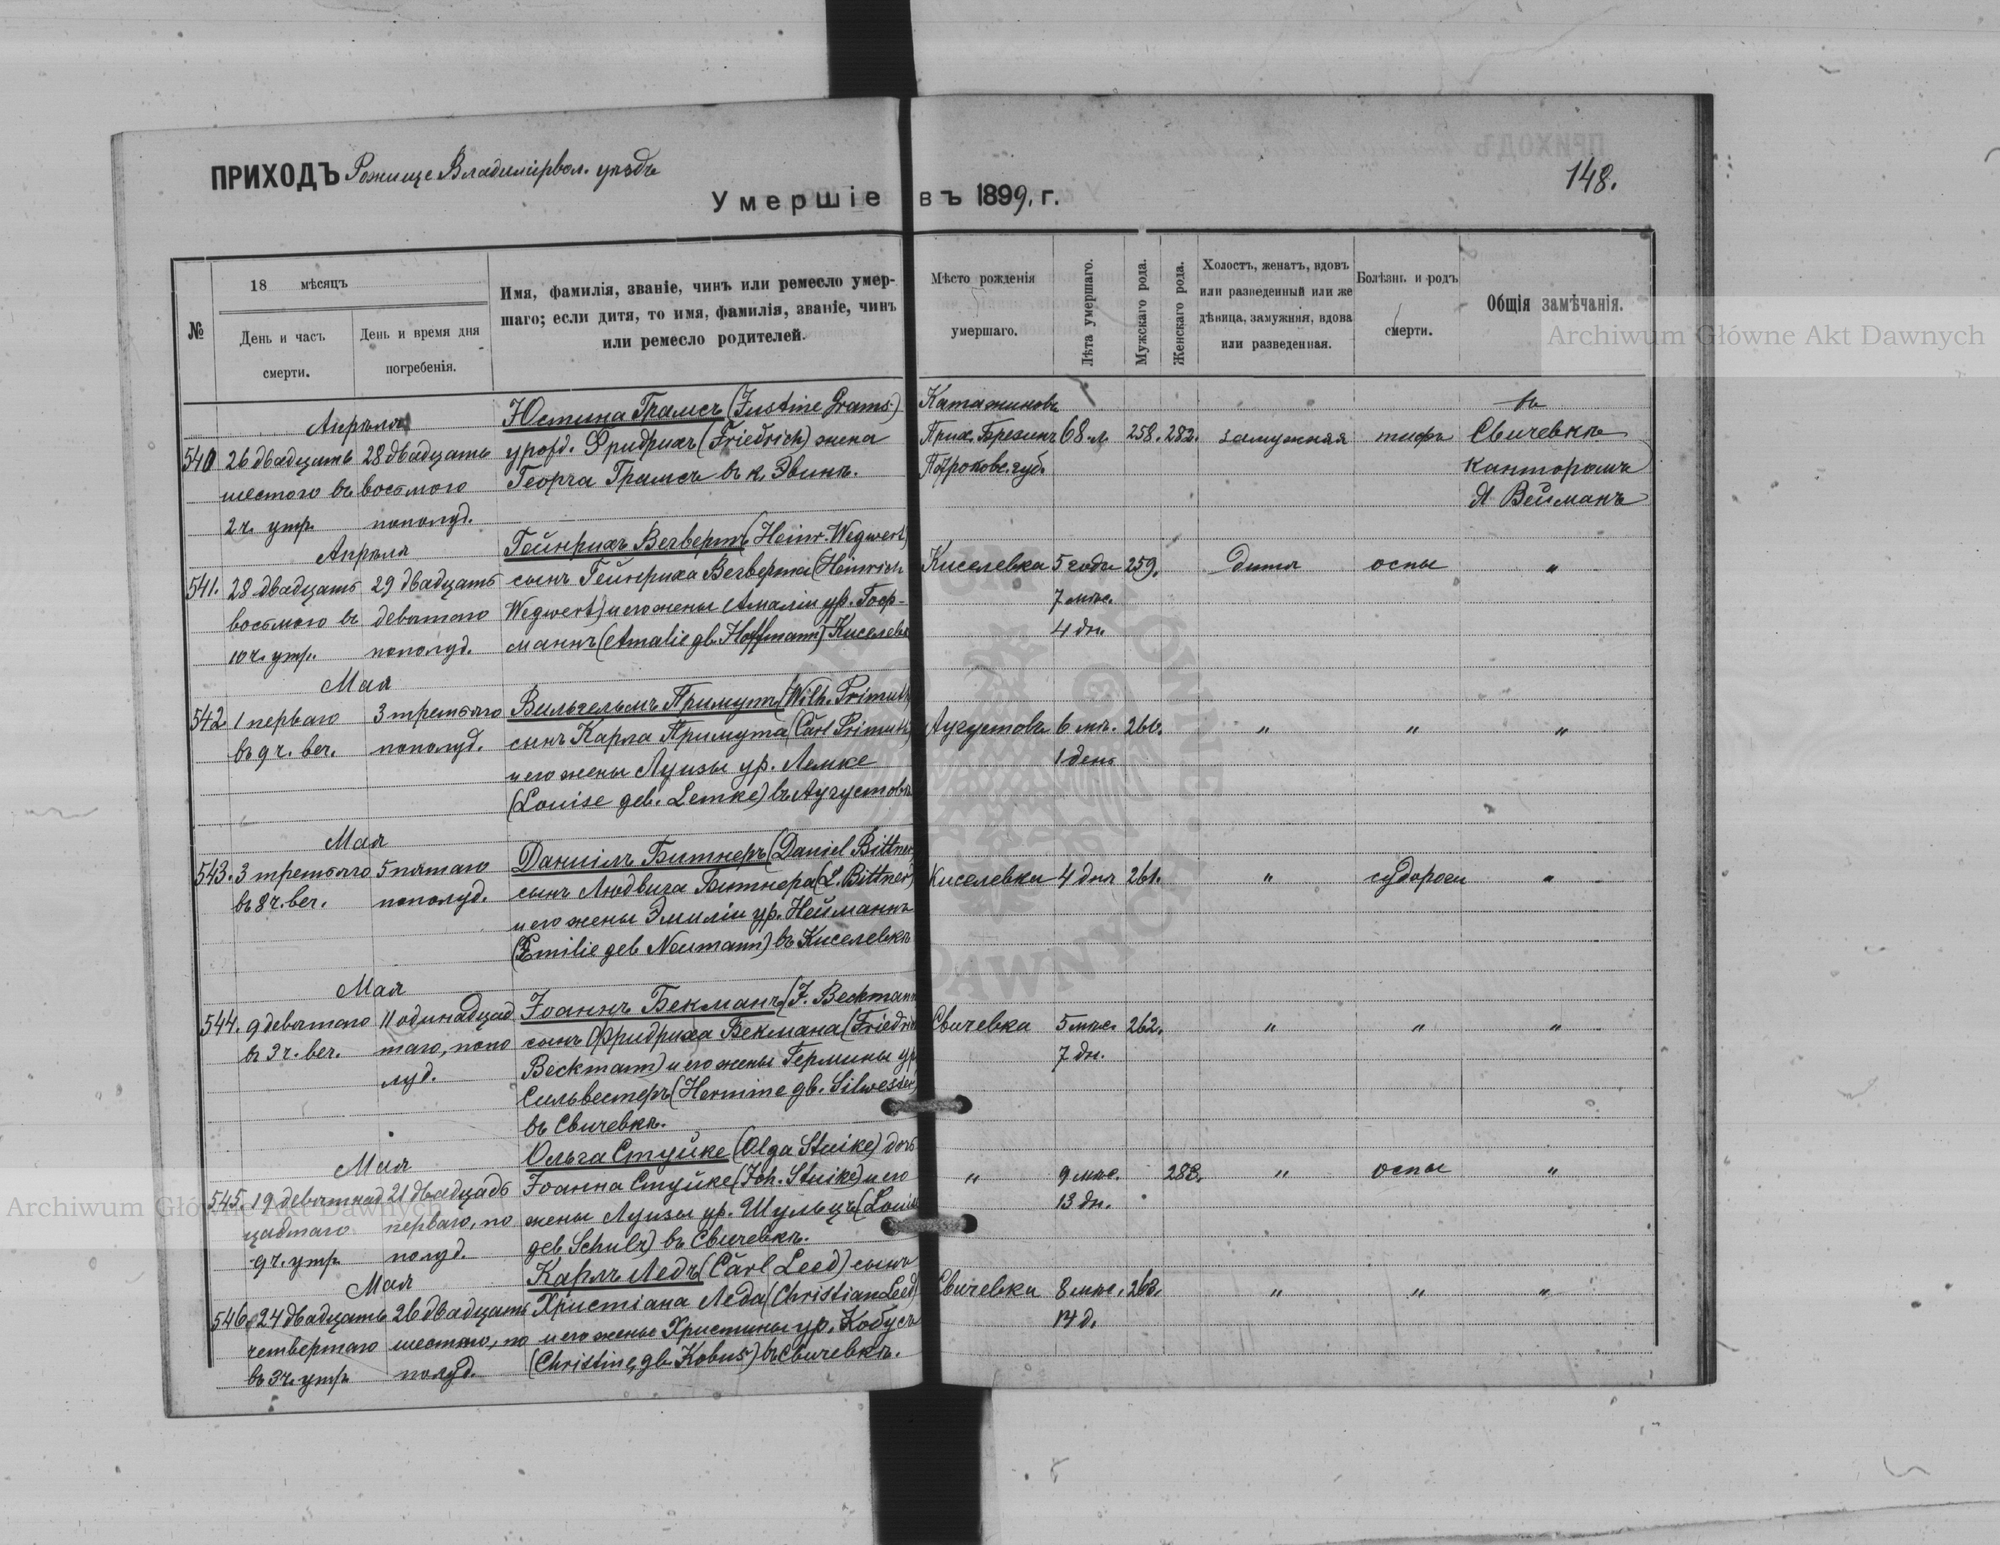 ПРИХОДЪ Рожище Владимірвол. уѣздъ
148.
Умершіе въ 1899, г.
№
18 мѣсяцъ
День и часъ смерти.
День и время дня погребенія.
Имя, фамилія, званіе, чинъ или ремесло умер-
шаго; если дитя, то имя, фамилія, званіе, чинъ
или ремесло родителей.
Мѣсто рожденія
умершаго.
Лѣта умершаго.
Мужскаго рода.
Женскаго рода.
Холостъ, женатъ, вдовъ
или разведенный или же
дѣвица, замужняя, вдова
или разведенная.
Болѣзнь и родъ
смерти.
Общія замѣчанія.
Archiwum Główne Akt Dawnych
Апрѣля Юстина Грамсъ (Justine Grams) Катажиновъ въ
540 26 двадцать 28 двадцать урожд. Фридрихъ (Friedrich) жена Прих. Брезинъ 68 л. 258. 282. замужняя тифъ Свичевкѣ
шестого въ восьмого Георга Грамсъ въ к. Эвинъ. Петроковс. губ. канторомъ
2 ч. утр. пополуд. Я Вейманъ
Апрѣля Гейнрихъ Вегвертъ (Heinr. Wegwert)
541. 28 двадцать 29 двадцать сынъ Гейнриха Вегверта (Heinrich Киселевка 5 годъ 259. дитя оспы "
восьмого въ девятаго Wegwert) и его жены Амаліи ур. Гоф- 7 мѣс.
10 ч. утр. пополуд. маннъ (Amalie gb. Hoffmann) Киселевк 4 дн.
Мая
542 1 перваго 3 третьяго Вильгельмъ Примутъ (Wilh. Primuth
въ 9 ч. веч. пополуд. сынъ Карла Примута (Carl Primuth) Аугустовъ 6 мѣ. 260. " " "
и его жены Луизы ур. Лемке 1 день
(Louise geb. Lemke) въ Аугустовъ
Мая
543. 3 третьяго 5 пятаго Даніилъ Битнеръ (Daniel Bittner)
въ 8 ч. веч. пополуд. сынъ Людвига Битнера (L. Bittner) Киселевка 4 дня 261. " судороги "
и его жены Эмиліи ур. Нейманнъ
(Emilie geb Neumann) въ Киселевкѣ
Мая
544. 9 девятаго 11 одинадцад Іоаннъ Бекманъ (J. Beckmann
въ 3 ч. веч. таго, попо сынъ Фридриха Бекмана (Friedric Свичевка 5 мѣс. 262. " " "
луд. Beckmann) и его жены Гермины ур 7 дн.
Сильвестеръ (Hermine gb. Silwester)
въ Свичевкѣ.
Мая Ольга Стуйке (Olga Stuike) дочь
545. 19 девятнад 21 двадцадь Іоанна Стуйке (Joh. Stuike) и его " 9 мѣс. 283. " оспы "
цадтаго перваго, по жены Луизы ур. Шульцъ (Louise 13 дн.
9 ч. утр. полуд. geb Schulz) въ Свичевкѣ.
Мая Карлъ Ледъ (Carl Leed) сынъ
546. 24 двадцать 26 двадцать Христіана Леда (Christian Leed) Свичевка 8 мѣс. 263. " " "
четвертаго шестого, по и его жены Христины ур. Кобусъ 14 д.
въ 3 ч. утр. полуд. (Christine, gb. Kobus) въ Свичевкѣ.
Archiwum Główne Akt Dawnych